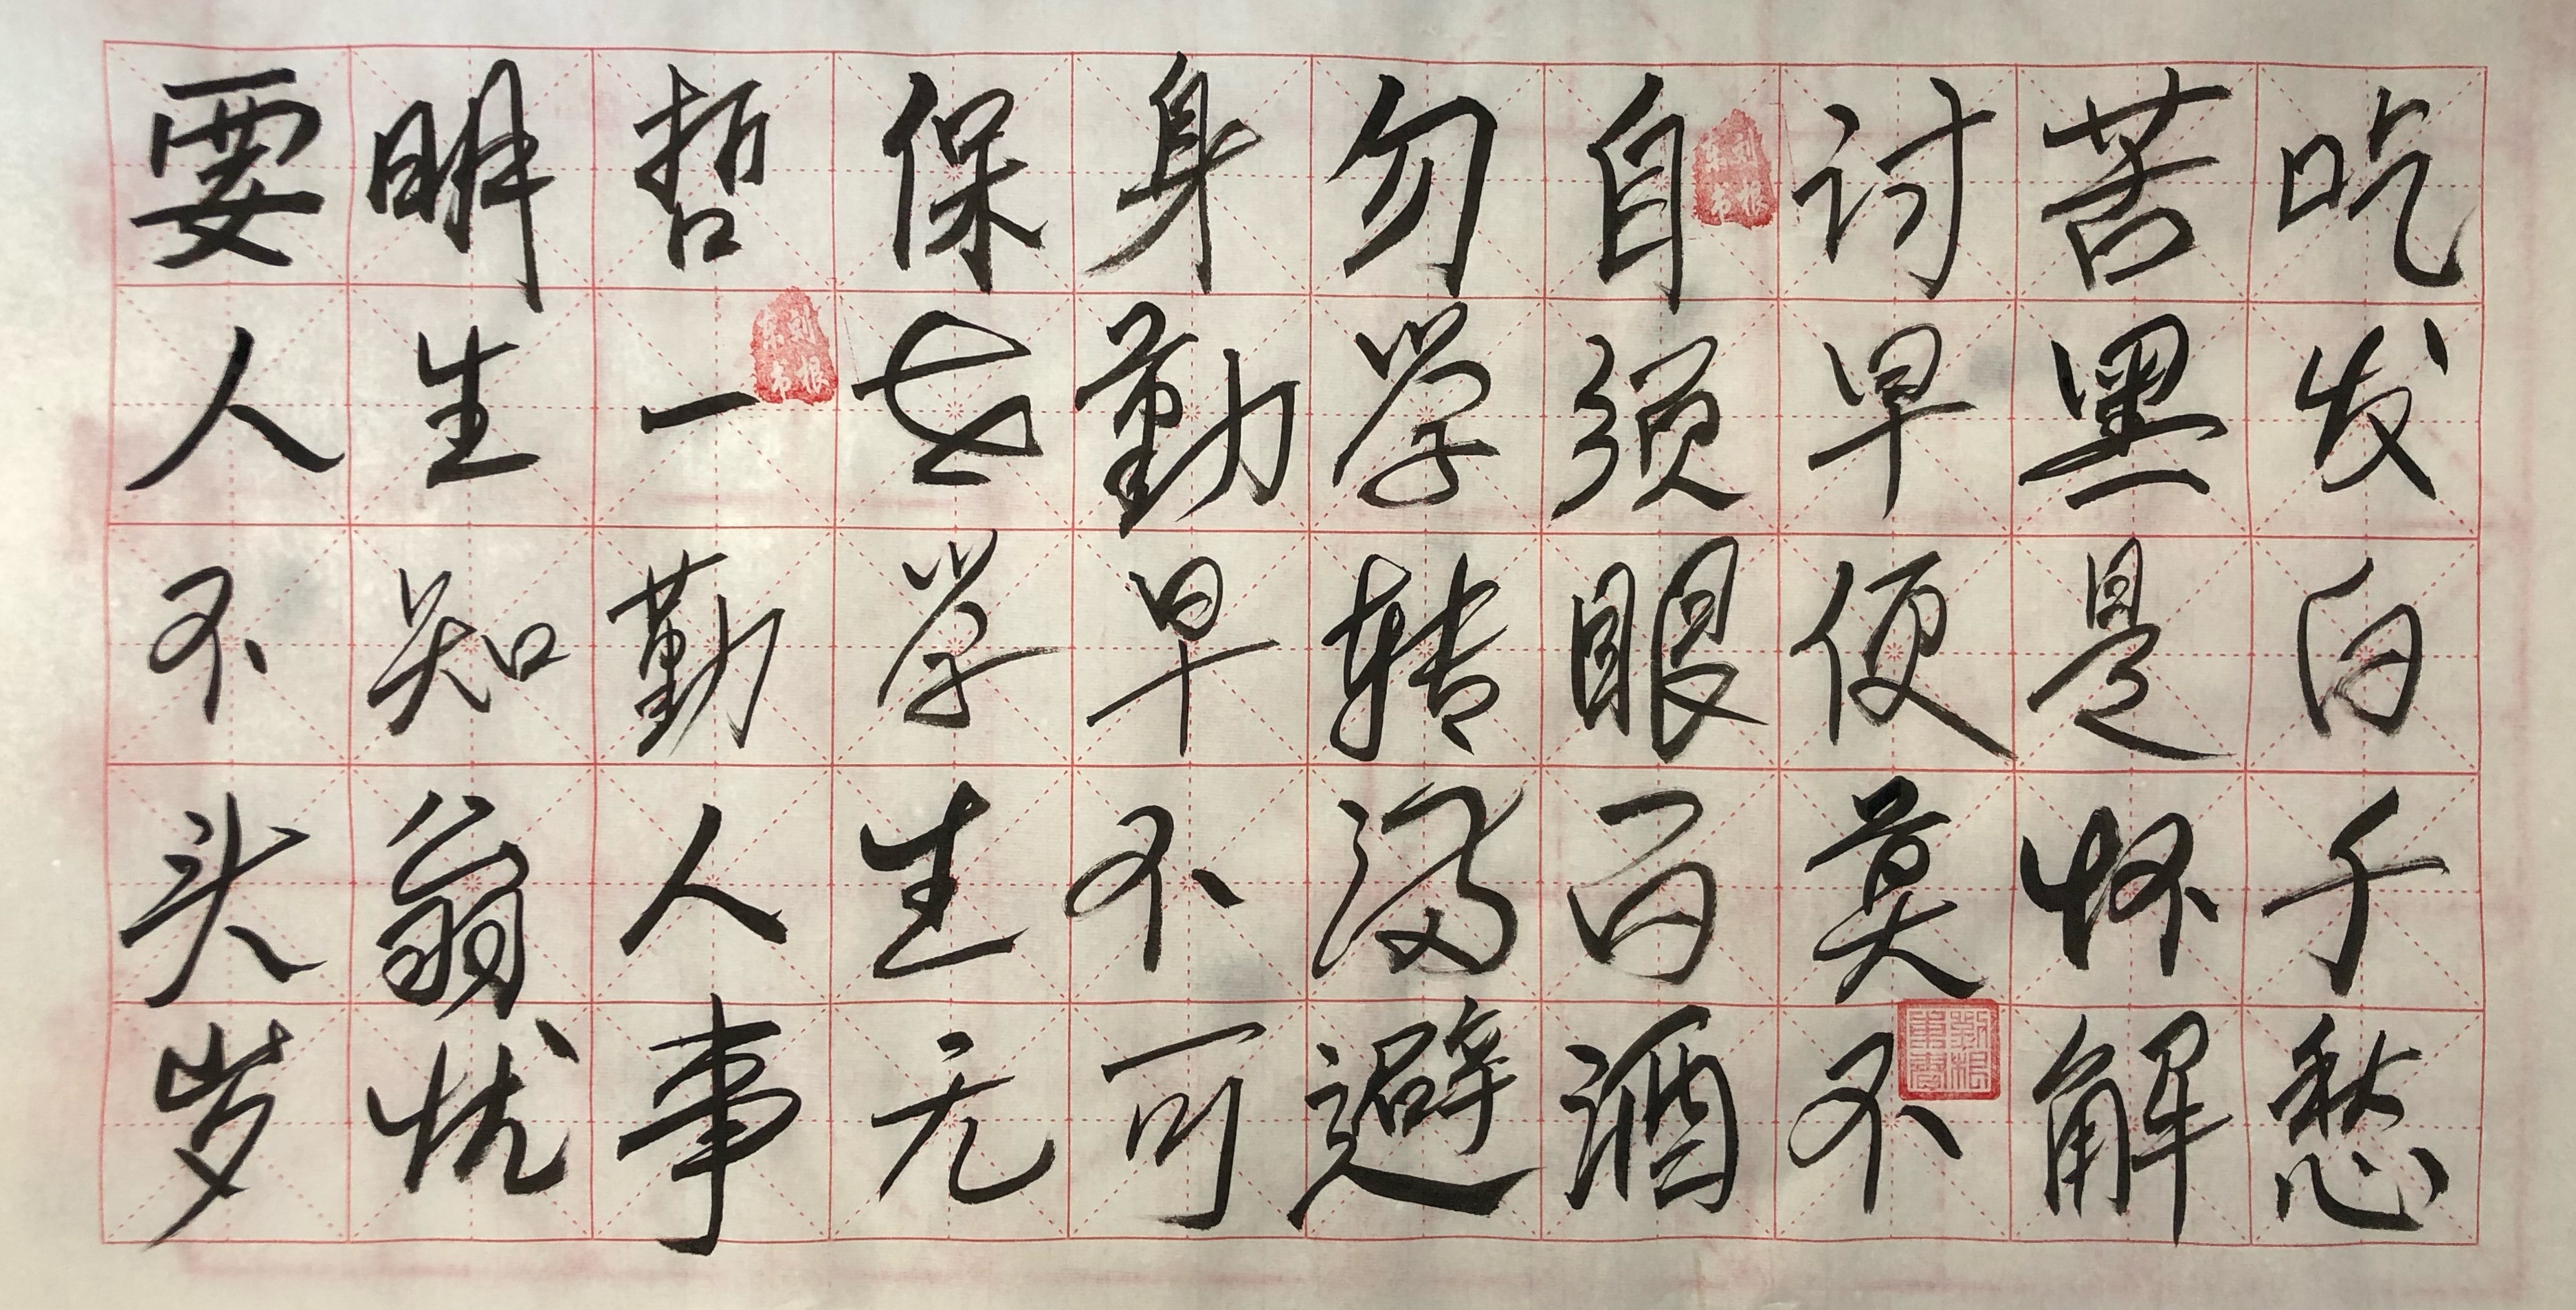 要明哲保身勿自讨苦吃
人生一世勤学须早黑发
不知勤学早转眼便是白
头翁人生不满百莫怀千
岁忧事无可避酒不解愁